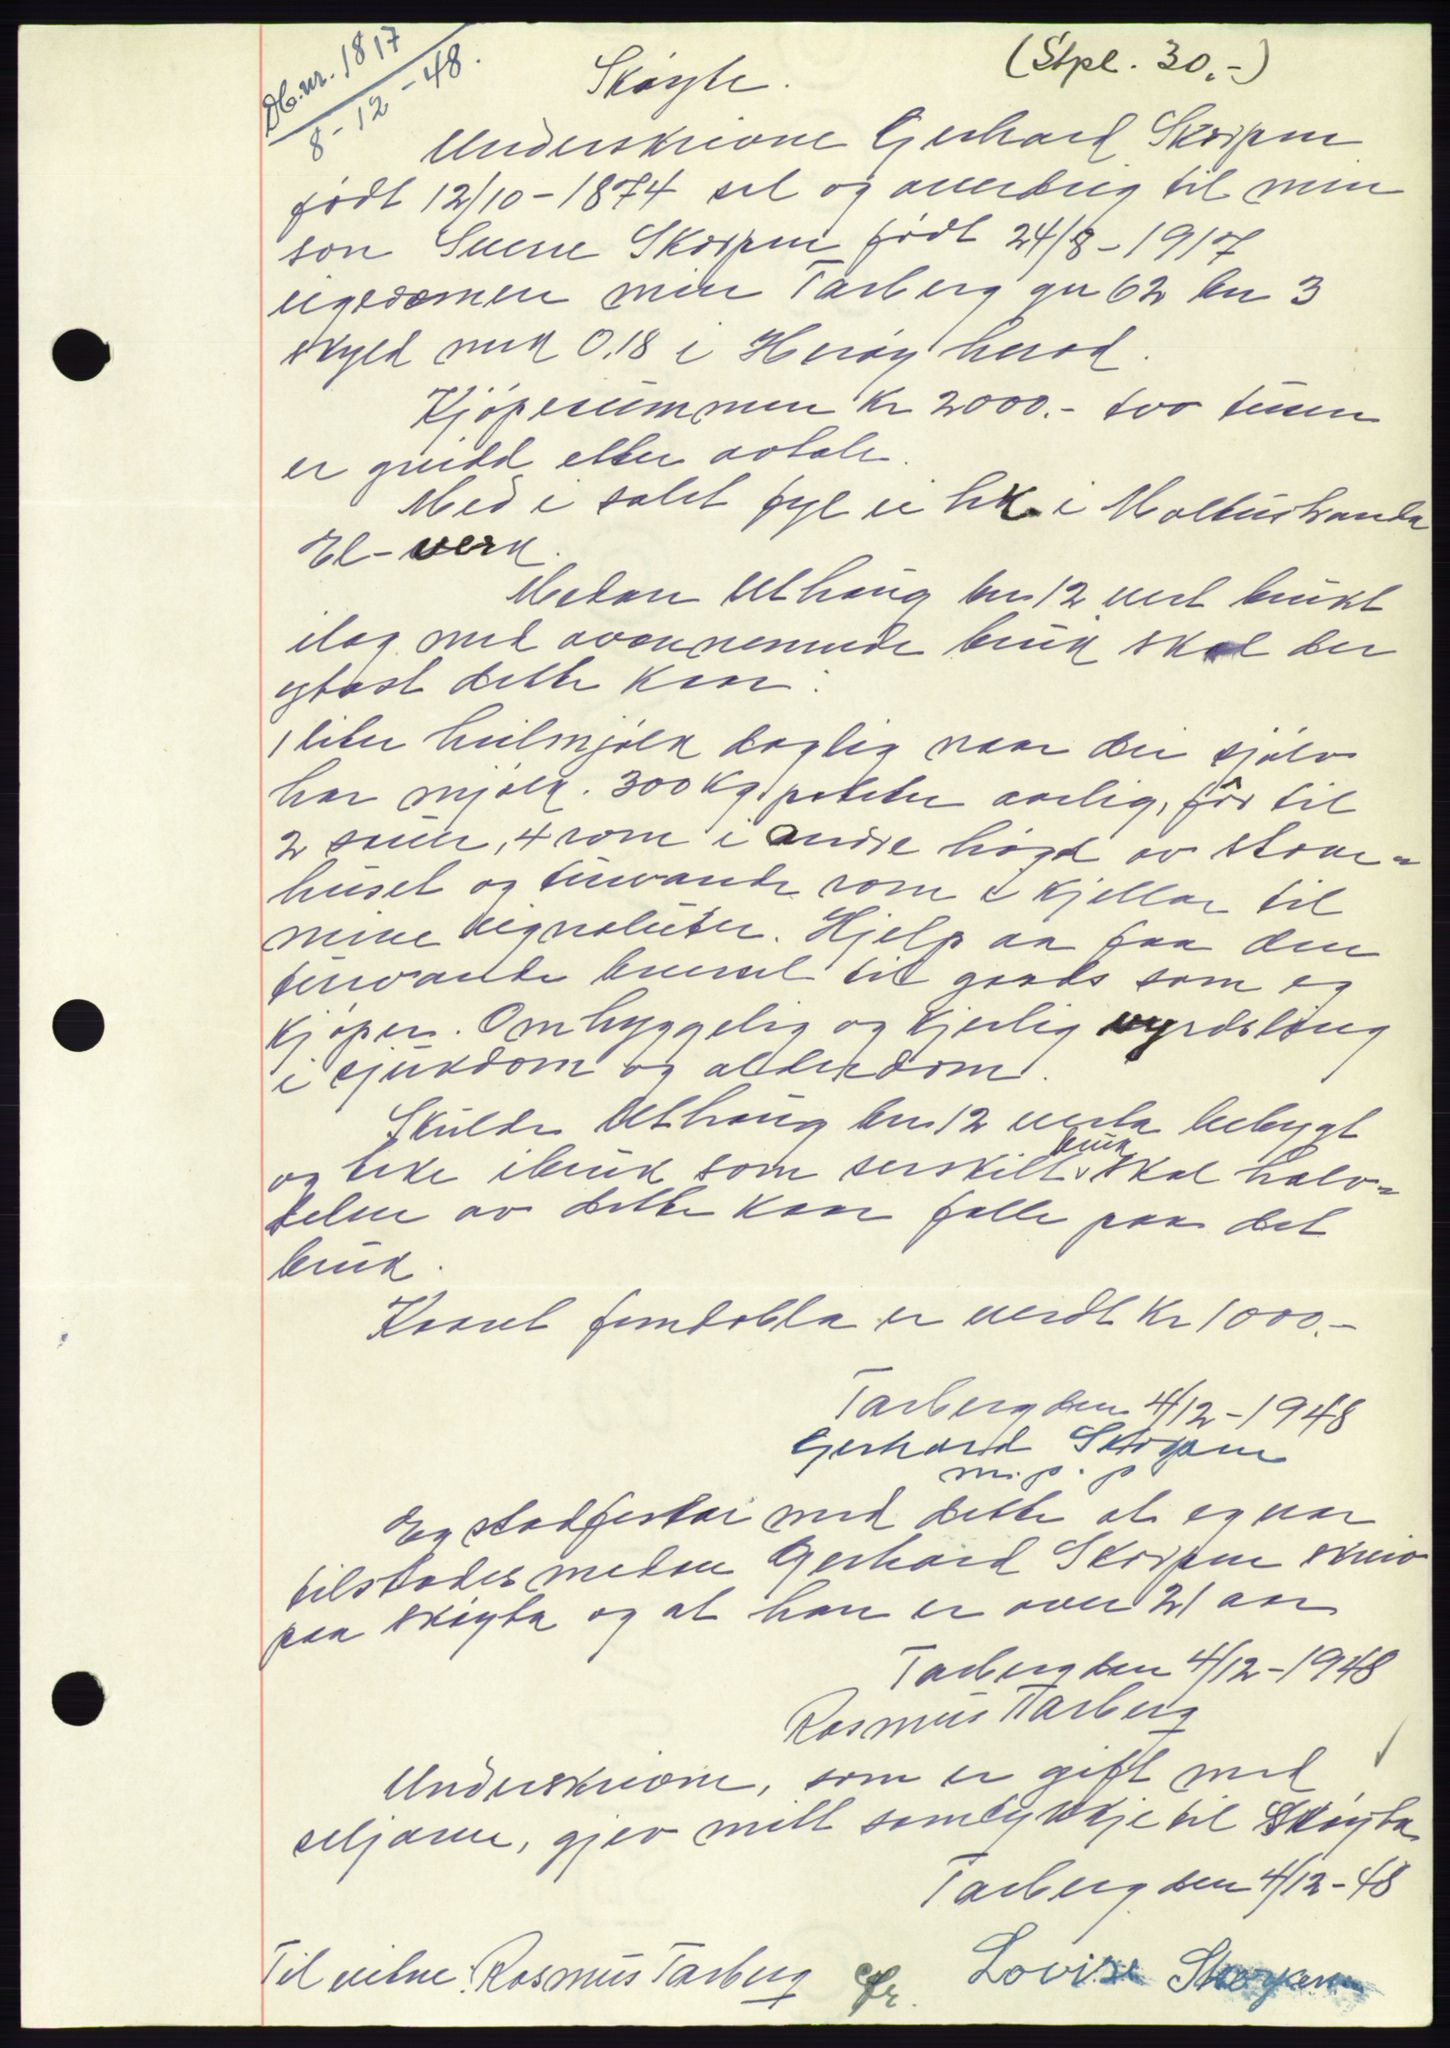 Db.nr. 1817
8-12-48.
(Stpl. 30.-)
Skøyte.
Underskrivne Gerhard Skorpen
født 12/10-1874 sel og overdreg til min
son Sverre Skorpen født 24/8-1917
eigedomen min Tarberg gn 62 bn 3
skyld mrk 0,18 i Herøy herad.
Kjøpesummen kr 2000.- tvo tusen
er greidd etter avtale.
Med i salet fyl ei hk i Moltustranda
El-verk.
Medan Uthaug bn 12 vert brukt
ilag med ovannemnde bruk skal der
ytast dette kaar:
1 liter heilmjølk dagleg naar dei sjølv
har mjølk. 300 kg poteter aarlig, fôr til
2 sauer, 4 rom i andre høgd av stove=
huset og turvande rom i kjellar til
mine eignaluter. Hjelp aa faa den
turvande brensel til gards som eg
kjøper. Omhyggelig og kjerlig vyrdsling
i sjukdom og alderdom.
Skulde Uthaug bn 12 verta bebygt
og teke ibruk som serskilt bruk skal halv=
delen av dette kaar falle paa det
bruk.
Kaaret femdobla er verdt kr 1000.-
Tarberg den 4/12-1948
Gerhard Skorpen
m.p.p
Eg stadfestar med dette at eg var
tilstades medan Gerhard Skorpen skreiv
paa skøyta og at han er over 21 aar
Tarberg den 4/12-1948
Rasmus Tarberg
Underskrivne, som er gift med
seljaren, gjev mitt samtykkje til skøyta
Tarberg den 4/12-48
Til vitne: Rasmus Tarberg
Lovise Skorpen